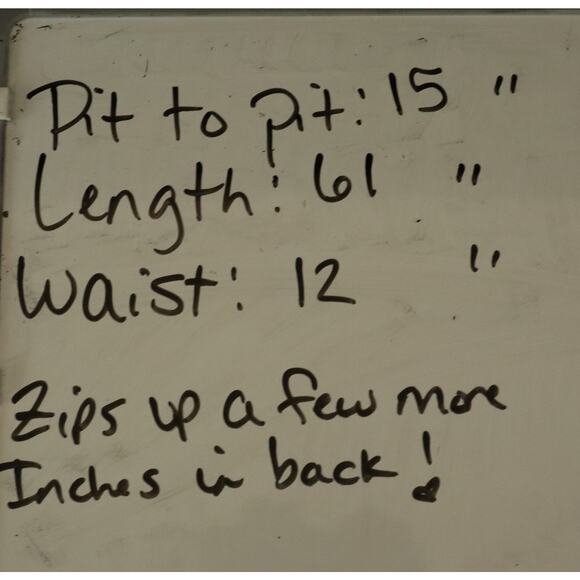 Pit to pit: 15 "
Length: 61 "
Waist: 12 "
Zips up a few more
Inches in back!